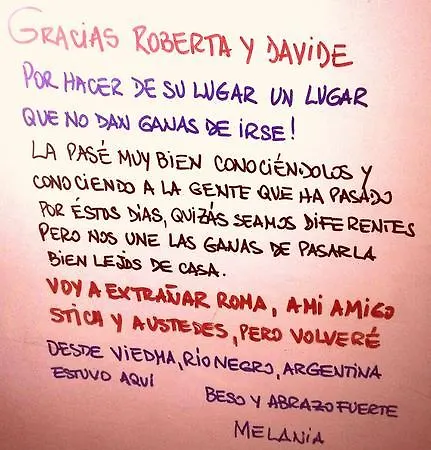 GRACIAS ROBERTA Y DAVIDE
POR HACER DE SU LUGAR UN LUGAR
QUE NO DAN GANAS DE IRSE!
LA PASÉ MUY BIEN CONOCIÉNDOLOS Y
CONOCIENDO A LA GENTE QUE HA PASADO
POR ÉSTOS DIAS, QUIZÁS SEAMOS DIFERENTES
PERO NOS UNE LAS GANAS DE PASARLA
BIEN LEJOS DE CASA.
VOY A EXTRAÑAR ROMA, A MI AMIGO
STICH Y A USTEDES, PERO VOLVERÉ
DESDE VIEDMA, RIO NEGRO, ARGENTINA
ESTUVO AQUÍ
BESO Y ABRAZO FUERTE
MELANIA